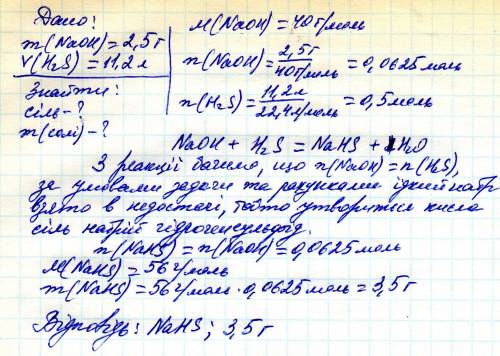 Дано:
m(NaOH) = 2,5г
V(H₂S) = 11,2л
Знайти:
сіль-?
m(солі)-?
M(NaOH) = 40г/моль
n(NaOH) = 2,5г / 40г/моль = 0,0625моль
n(H₂S) = 11,2л / 22,4л/моль = 0,5моль
NaOH + H₂S = NaHS + H₂O
З реакції бачимо, що n(NaOH) = n(H₂S),
за умовами задачі та рахунками їдкий натр
взято в недостачі, тобто утвориться кисла
сіль натрій гідрогенсульфід.
n(NaHS) = n(NaOH) = 0,0625моль
M(NaHS) = 56г/моль
m(NaHS) = 56г/моль · 0,0625моль = 3,5г
Відповідь: NaHS; 3,5г